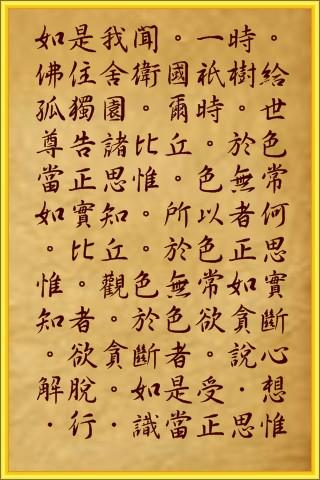 如是我聞。一時。
佛住舍衛國祇樹給
孤獨園。爾時。世
尊告諸比丘。於色
當正思惟。色無常
如實知。所以者何
。比丘。於色正思
惟。觀色無常如實
知者。於色欲貪斷
。欲貪斷者。說心
解脫。如是受．想
．行．識當正思惟